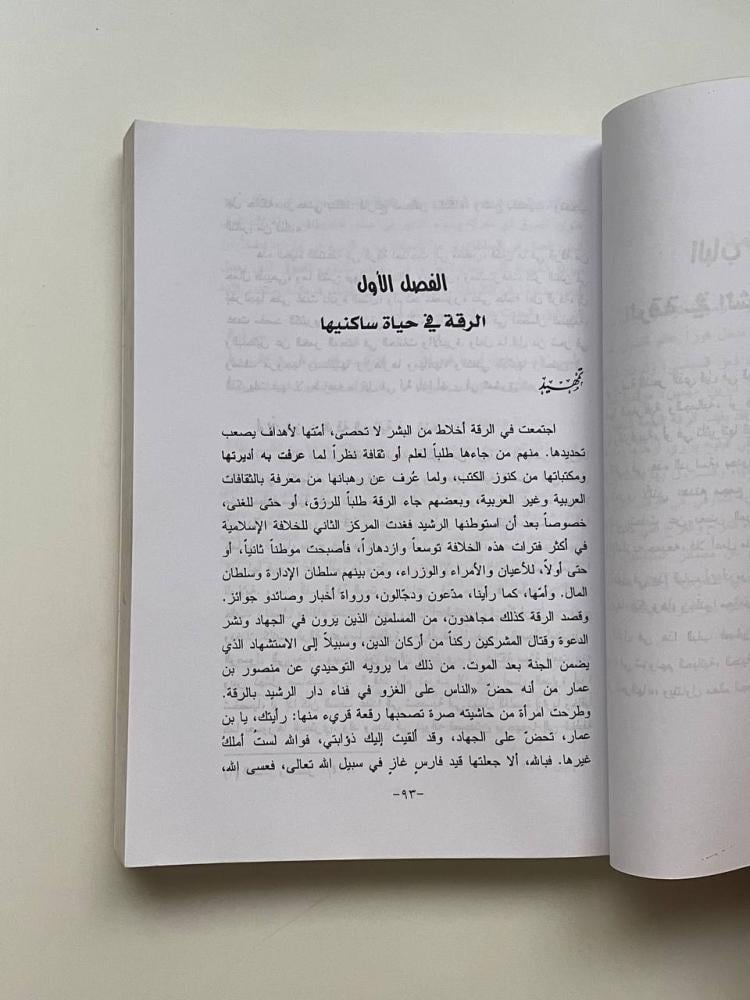 الفصل الأول
الرقة في حياة ساكنيها
تمهيد
اجتمعت في الرقة أخلاط من البشر لا تحصى، أمّتها لأهداف يصعب
تحديدها. منهم من جاءها طلباً لعلم أو ثقافة نظراً لما عرفت به أديرتها
ومكتباتها من كنوز الكتب، ولما عُرف عن رهبانها من معرفة بالثقافات
العربية وغير العربية، وبعضهم جاء الرقة طلباً للرزق، أو حتى للغنى،
خصوصاً بعد أن استوطنها الرشيد فغدت المركز الثاني للخلافة الإسلامية
في أكثر فترات هذه الخلافة توسعاً وازدهاراً، فأصبحت موطناً ثانياً، أو
حتى أولاً، للأعيان والأمراء والوزراء، ومن بينهم سلطان الإدارة وسلطان
المال. وأمّها، كما رأينا، مدّعون ودجّالون، ورواة أخبار وصائدو جوائز.
وقصد الرقة كذلك مجاهدون، من المسلمين الذين يرون في الجهاد ونشر
الدعوة وقتال المشركين ركناً من أركان الدين، وسبيلاً إلى الاستشهاد الذي
يضمن الجنة بعد الموت. من ذلك ما يرويه التوحيدي عن منصور بن
عمار من أنه حضّ «الناس على الغزو في فناء دار الرشيد بالرقة.
وطرحت امرأة من حاشيته صرة تصحبها رقعة قريء منها: رأيتك، يا بن
عمار، تحضّ على الجهاد، وقد ألقيت إليك ذؤابتي، فوالله لستُ أملكُ
غيرها. فبالله، ألا جعلتها قيد فارسٍ غازٍ في سبيل الله تعالى، فعسى الله،
-٩٣-